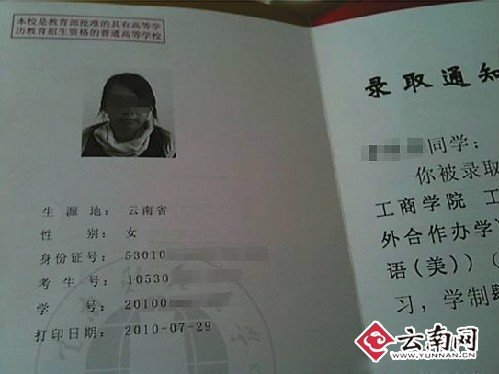 本校是教育部批准的具有高等学
历教育招生资格的普通高等学校
生源地：云南省
性别：女
身份证号：53010
考生号：10530
学号：20100
打印日期：2010-07-29
录取通知
同学：
你被录取
工商学院 工
外合作办学
语（美））（
习，学制
云南网
WWW.YUNNAN.CN